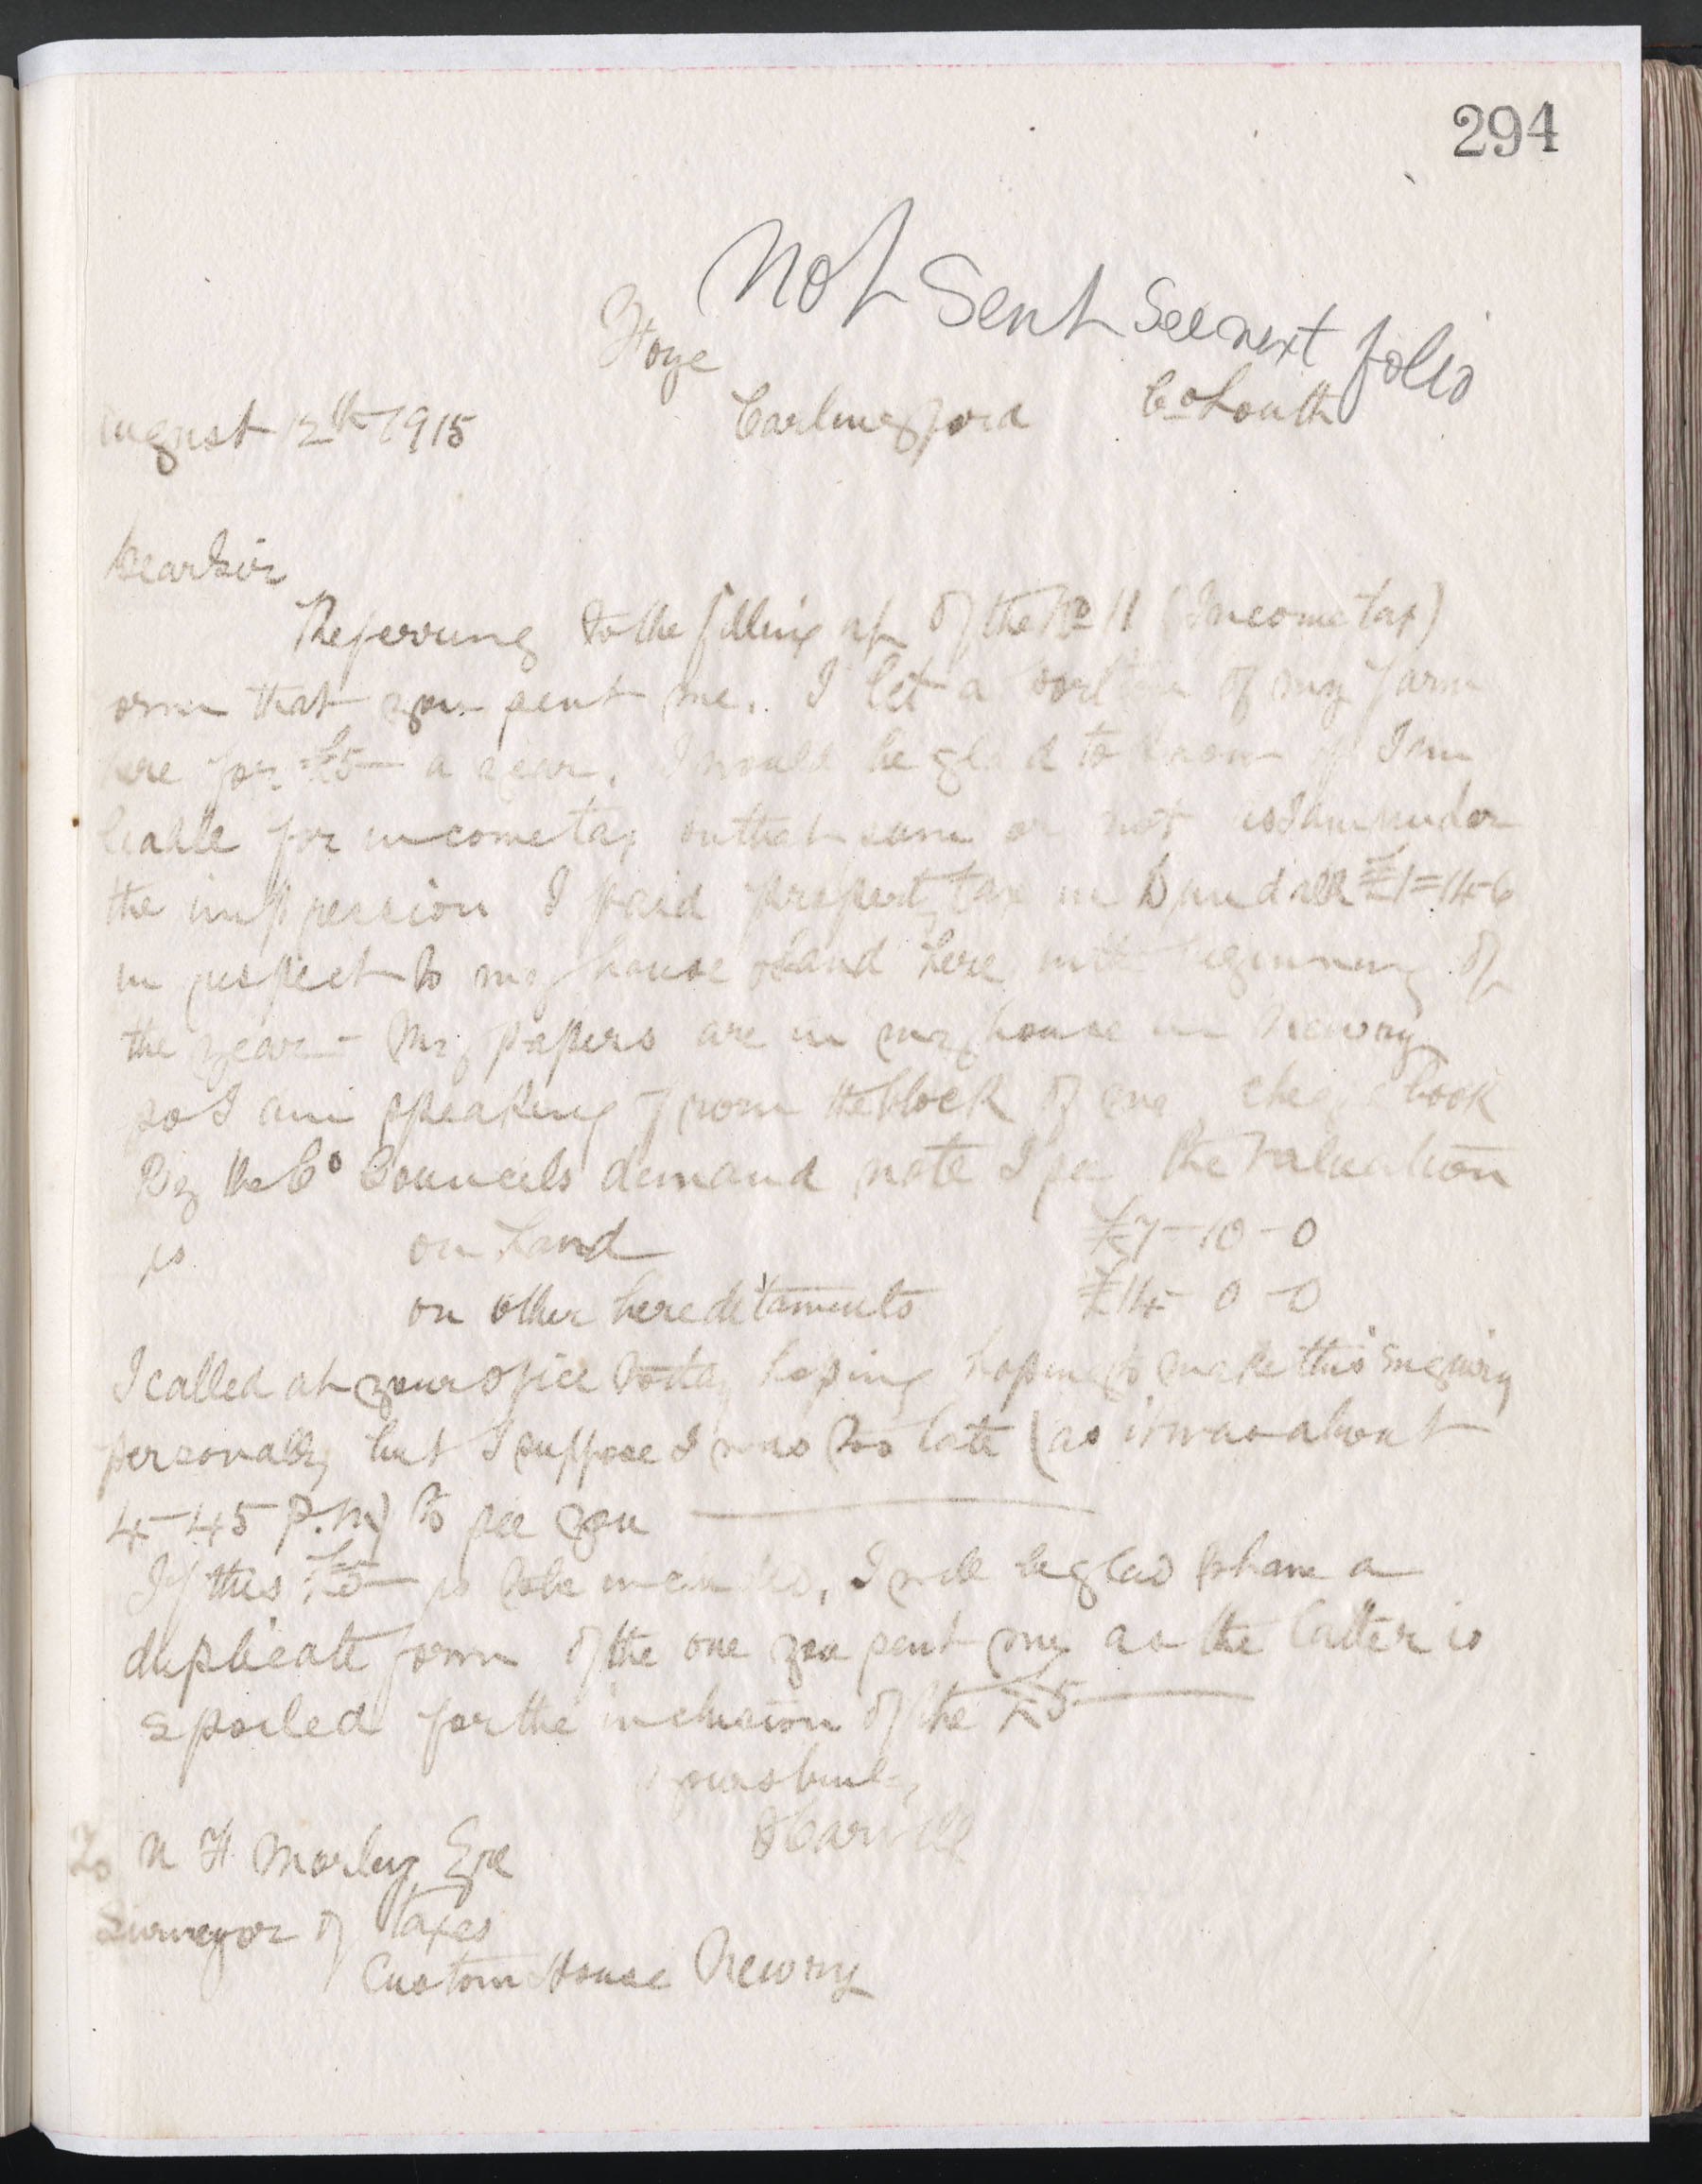 294
Not Sent See next folio
Foye
August 12th 1915 Carlingford Co Louth
Dear Sir
Referring to the filling up of the No 11 (Income tax)
orm that you sent me. I let a portion of my farm
here for £5 — a year. I would be glad to know if I am
liable for income tax on that sum or not as I am under
the impression I paid property tax in Dundalk £1=14-6
in respect to my house & land here in the beginning of
the year — My papers are in my house in Newry
so I am speaking from the block of one cheque book
By the Co Councils demand note I see the valuation
is on Land £7-10-0
on other hereditaments £14-0-0
I called at your office today hoping hoping to make this inquiry
personally but I suppose I was too late (as it was about
4-45 P.M) to see you
If this £5 — is to be included, I will be glad to have a
duplicate form of the one you sent me as the latter is
spoiled for the inclusion of the £5
yours truly
Carvill
To N H Morley Esq
Surveyor of Taxes
Custom House Newry